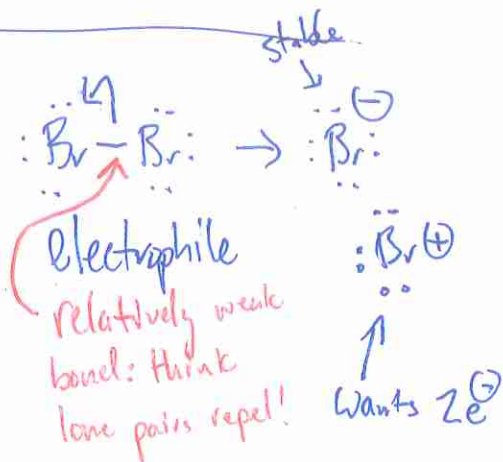 stable
Br — Br → Br ⊖
Br ⊕
electrophile
relatively weak
bond: think
lone pairs repel!
wants 2e⊖